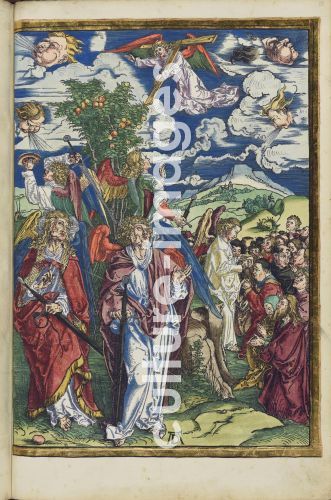 culture images